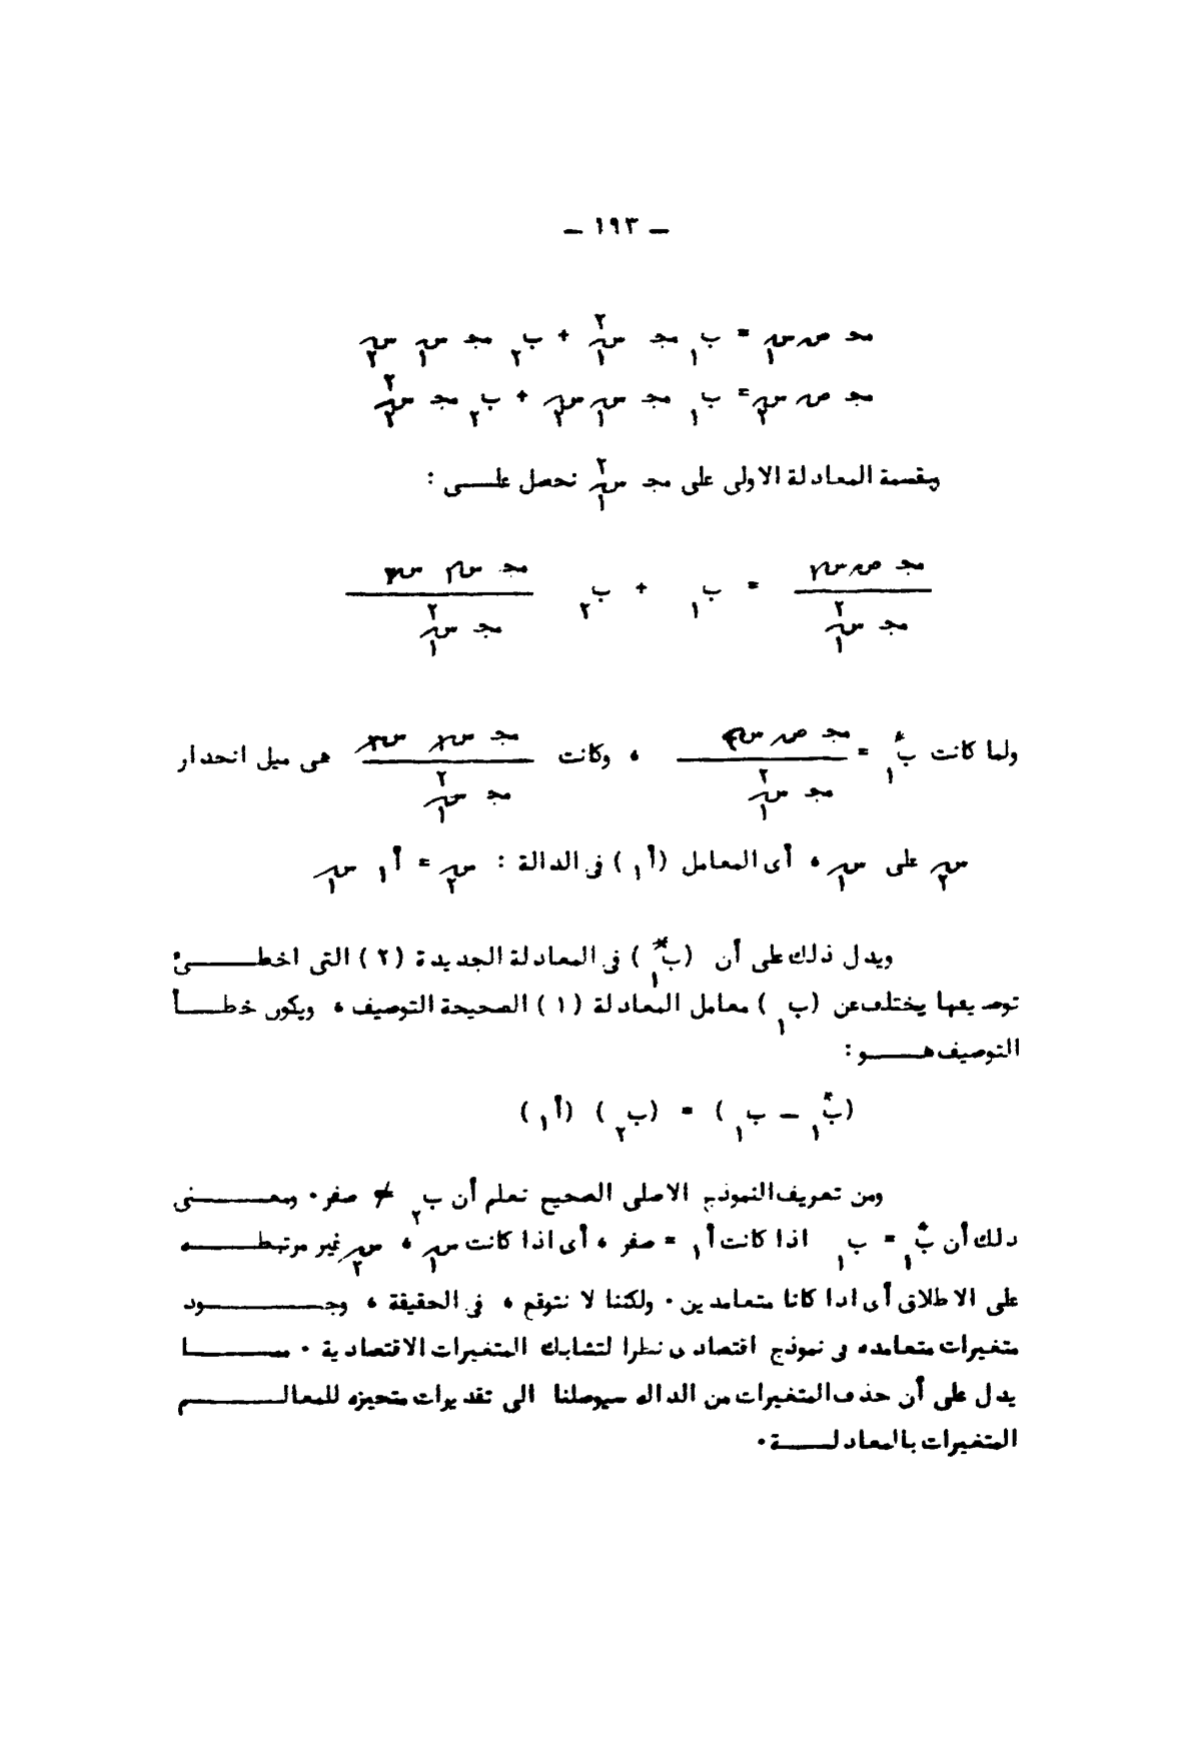 – ١٩٣ –
مجـ ص س₁ = ب₁ مجـ س₁² + ب₂ مجـ س₁ س₂
مجـ ص س₂ = ب₁ مجـ س₁ س₂ + ب₂ مجـ س₂²
وبقسمة المعادلة الاولى على مجـ س₁² نحصل علـــى :
مجـ ص س₁ / مجـ س₁² = ب₁ + ب₂ مجـ س₁ س₂ / مجـ س₁²
ولما كانت ب₁* = مجـ ص س₁ / مجـ س₁² ، وكانت مجـ س₁ س₂ / مجـ س₁² هى ميل انحدار
س₂ على س₁ ، أى المعامل (أ₁) فى الدالة : س₂ = أ₁ س₁
ويدل ذلك على أن (ب₁*) فى المعادلة الجديدة (٢) التى اخطـــئ
توصيفها يختلف عن (ب₁) معامل المعادلة (١) الصحيحة التوصيف ، ويكون خطـــأ
التوصيف هـــو :
(ب₁* – ب₁) = (ب₂) (أ₁)
ومن تعريف النموذج الاصلى الصحيح نعلم أن ب₂ ≠ صفر . ومعـــنى
ذلك أن ب₁* = ب₁ اذا كانت أ₁ = صفر ، أى اذا كانت س₁ ، س₂ غير مرتبطـــه
على الاطلاق أى اذا كانا متعامدين . ولكننا لا نتوقع ، فى الحقيقة ، وجـــود
متغيرات متعامده فى نموذج اقتصادى نظرا لتشابك المتغيرات الاقتصادية . ممـــا
يدل على أن حذف المتغيرات من الداله سيوصلنا الى تقديرات متحيزه للمعالـــم
المتغيرات بالمعادلـــة .